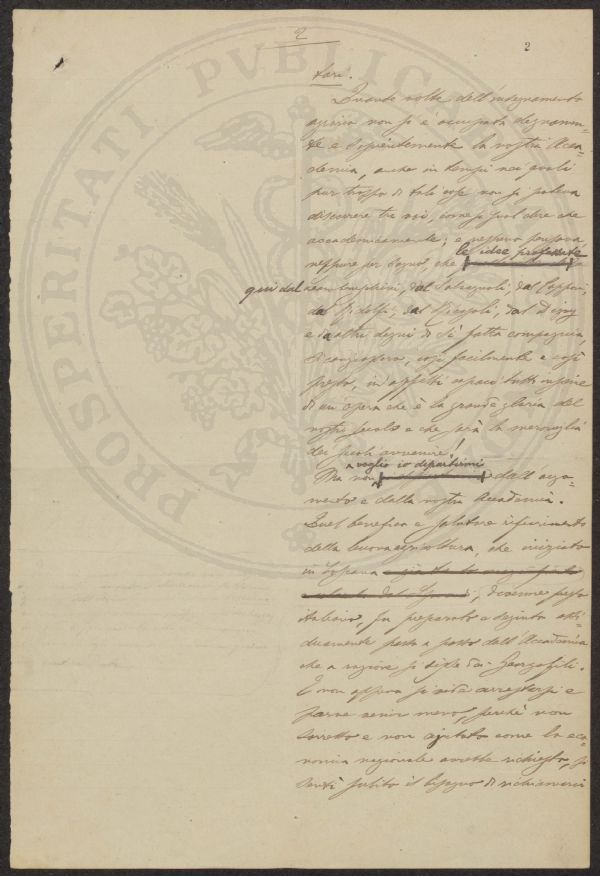 2
2
tari.
Quante volte dell'insegnamento
agrario non si è occupata degnamen-
te e sapientemente la nostra Acca-
demia, anche in tempi nei quali
pur troppo di tali cose non si poteva
discorrere tra noi, come si suol dire che
accademicamente; e nessuno pensava
neppure per sogno, che le idee professate
qui dal Lambruschini, dal Salvagnoli, dal Capponi,
dal Ridolfi, dal Ricasoli, dal Digny
e da altri degni di sì fatta compagnia,
si così facilmente e così
presto, in effetti capaci tutti insieme
di un'opera che è la grande gloria del
nostro secolo e che sarà la meraviglia
dei secoli avvenire!
Ma non voglio io dipartirmi dall'argo-
mento e dalla nostra Accademia.
Quel benefico e salutare rifiorimento
della buona agricoltura, che iniziato
in Toscana, divenne presto
italiano, fu preparato e seguito assi-
duamente passo a passo dall'Accademia
che a ragione si disse dei Georgofili.
E non appena si vide arrestarsi e
parve venir meno, perchè non
sorretto e non ajutato come la eco-
nomia nazionale avrebbe richiesto, si
sentì subito il bisogno di richiamarci
PROSPERITATI PVBLICAE